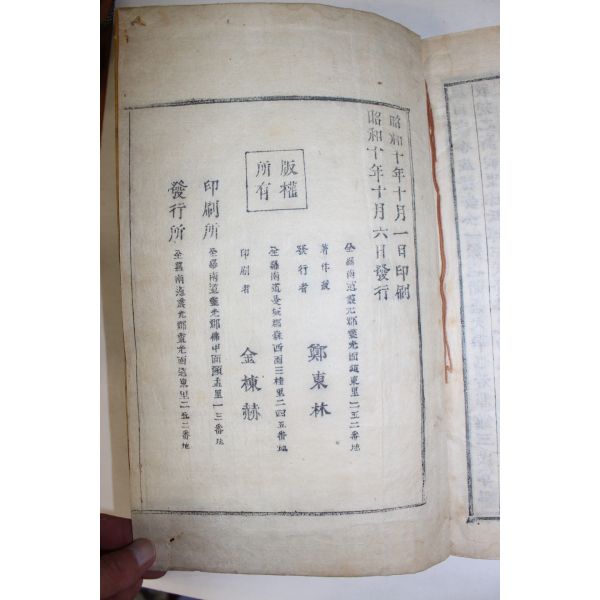 昭和十年十月一日印刷
昭和十年十月六日發行
版權
所有
全羅南道靈光郡靈光面道東里二五二番地
著作兼
發行者
鄭東林
全羅南道長城郡森西面三桂里二四五番地
印刷者
金棟赫
印刷所
全羅南道靈光郡佛甲面 里一三番地
發行所
全羅南道靈光郡靈光面道東里二五二番地